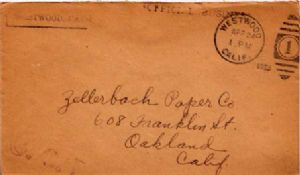 WESTWOOD
APR 24
1 PM
CALIF.
1
Zellerbach Paper Co
608 Franklin St.
Oakland
Calif.